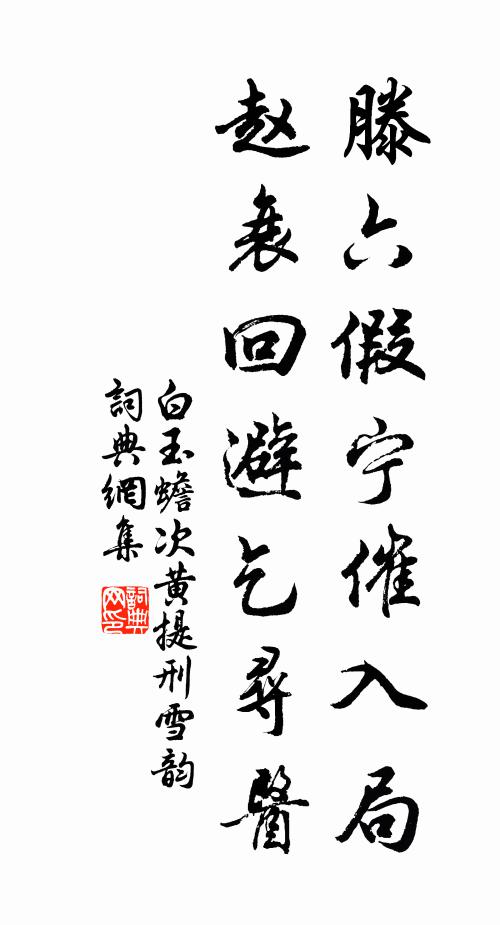 滕六假宁催入局
赵衰回避乞寻醫
白玉蟾次黄提刑雪韵
詞典網集
詞典网印